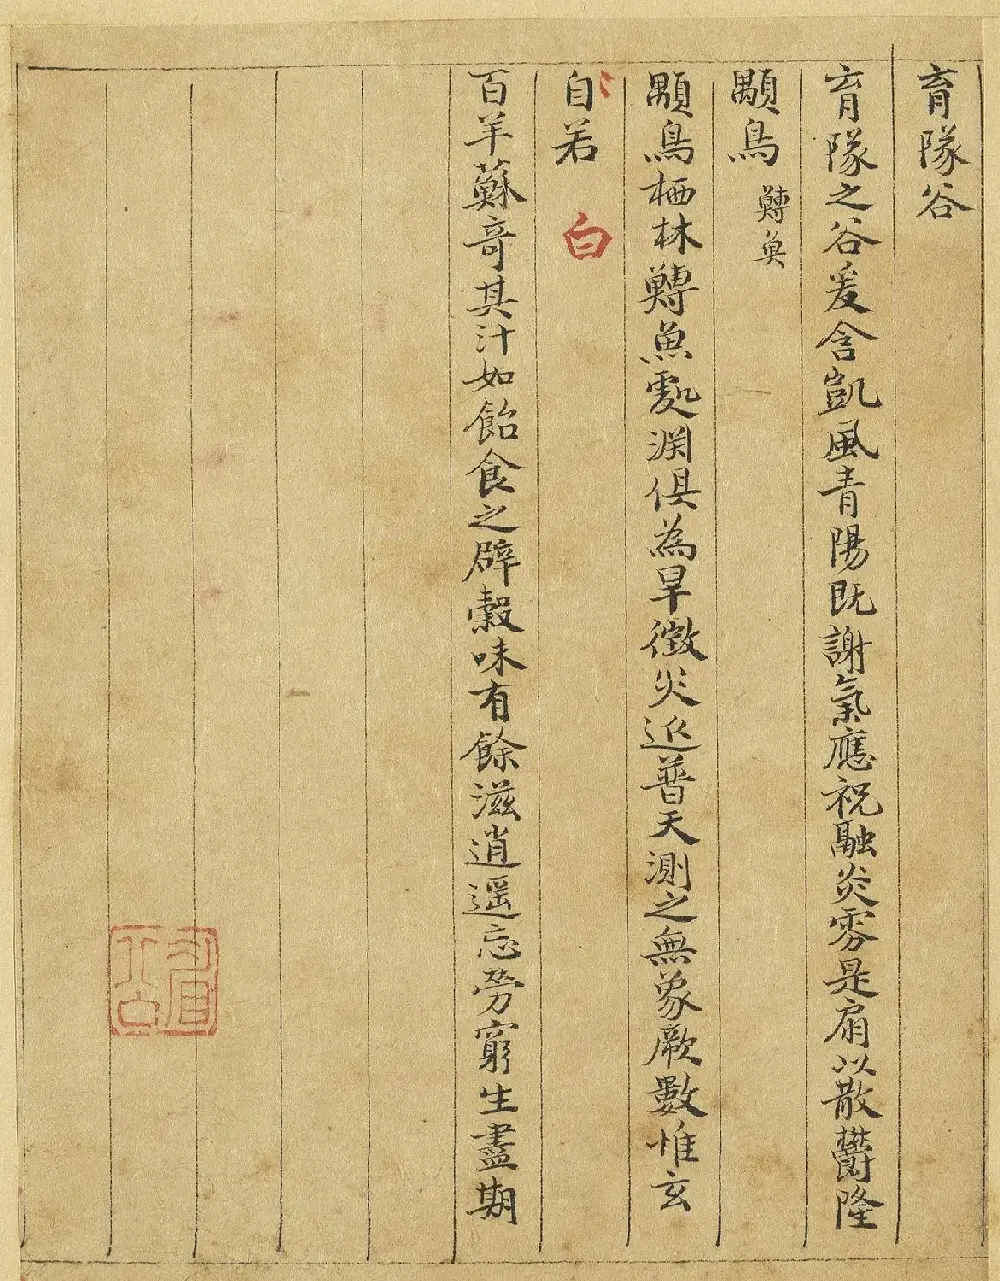 育隊谷
育隊之谷爰含凱風青陽既謝氣應祝融炎雰是扇以散欝隆
顒鳥 鱄魚
顒鳥栖林鱄魚處渊俱為旱徵災延普天測之無象厥數惟玄
自若 白
百羊蘇竒其汁如飴食之辟穀味有餘滋逍遥忘勞窮生盡期